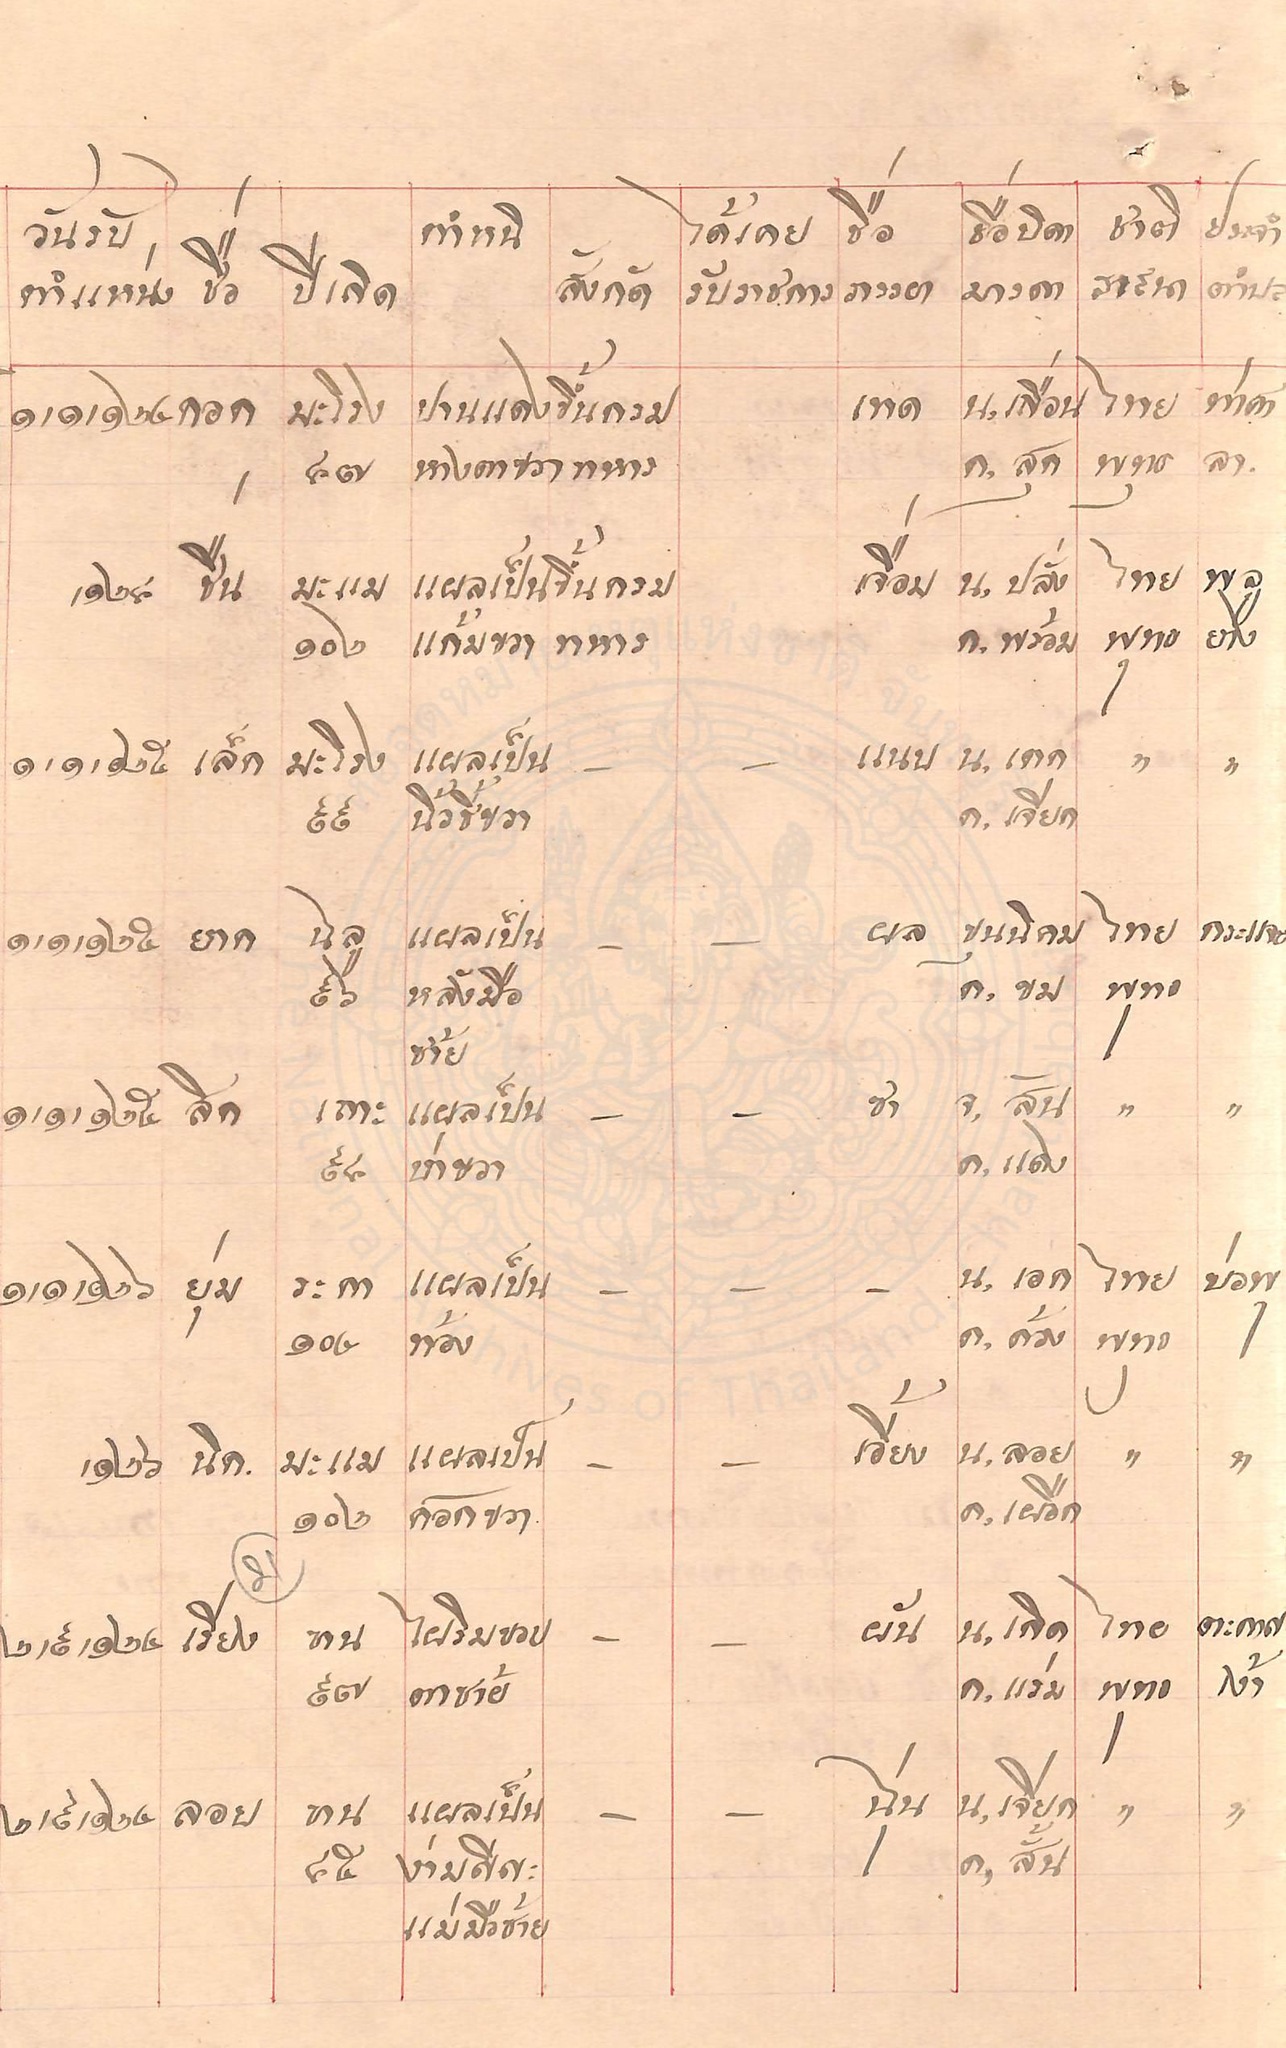 วันรับ ตำหนิ ได้เคย ชื่อ ชื่อบิดา ชาติ ประจำ
ตำแหน่ง ชื่อ ปีเกิด สังกัด รับราชการ ภรรยา มารดา สาสนา ตำบล
กอก มะโรง ปานแดง ขึ้นกรม เทด น, เลื่อน ไทย ท่าตา
๔๗ หางตาขวา ทหาร ค, สุก พุทธ ลา.
ชื่น มะแม แผลเป็น ขึ้นกรม เจื่อม น, ปลั่ง ไทย พลู
๑๐๒ แก้มขวา ทหาร ค, พร้อม พุทธ ยาง
๑,๑,๑๒๕ เล็ก มะโรง แผลเป็น — — แนบ น, เตก " "
๕๕ นิ้วชี้ขวา ค, เจียก
๑,๑,๑๒๕ ยาก ฉลู แผลเป็น — — ผล ขุนนิคม ไทย
๕๖ หลังมือ ค, ขม พุทธ
ซ้าย
๑,๑,๑๒๕ ลิก เถาะ แผลเป็น — — ชา จ, ลัน " "
๕๔ บ่าขวา ค, แดง
๑,๑,๑๒๖ ยุ่ม ระกา แผลเป็น — — — น, เอก ไทย บ่อพุ
ท้อง ค, ด้วง พุทธ
๑๒๖ นิด. มะแม แผลเป็น — — เอี้ยง น, ลอย " "
๑๐๒ ศอกขวา ค, เผือก
เรี่ยง ขาน ไฝริมขอบ — — ผัน น, เกิด ไทย ตะกาด
๕๗ ตาซ้าย ค, แร่ม พุทธ เง้า
ลอย ขาน แผลเป็น — — นุ่น น, เจียก " "
๔๕ ง่าม ค, สั้น
แม่มือซ้าย